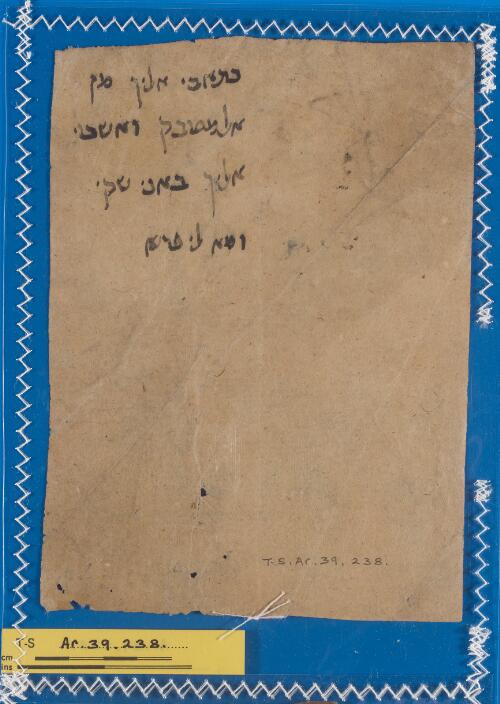 כתאבי אליך מן
אלמטבק ואשכו
אליך באני שקי
ומא לי פרש
T-S. Ar. 39. 238.
T-S Ar. 39. 238.
cm
ins